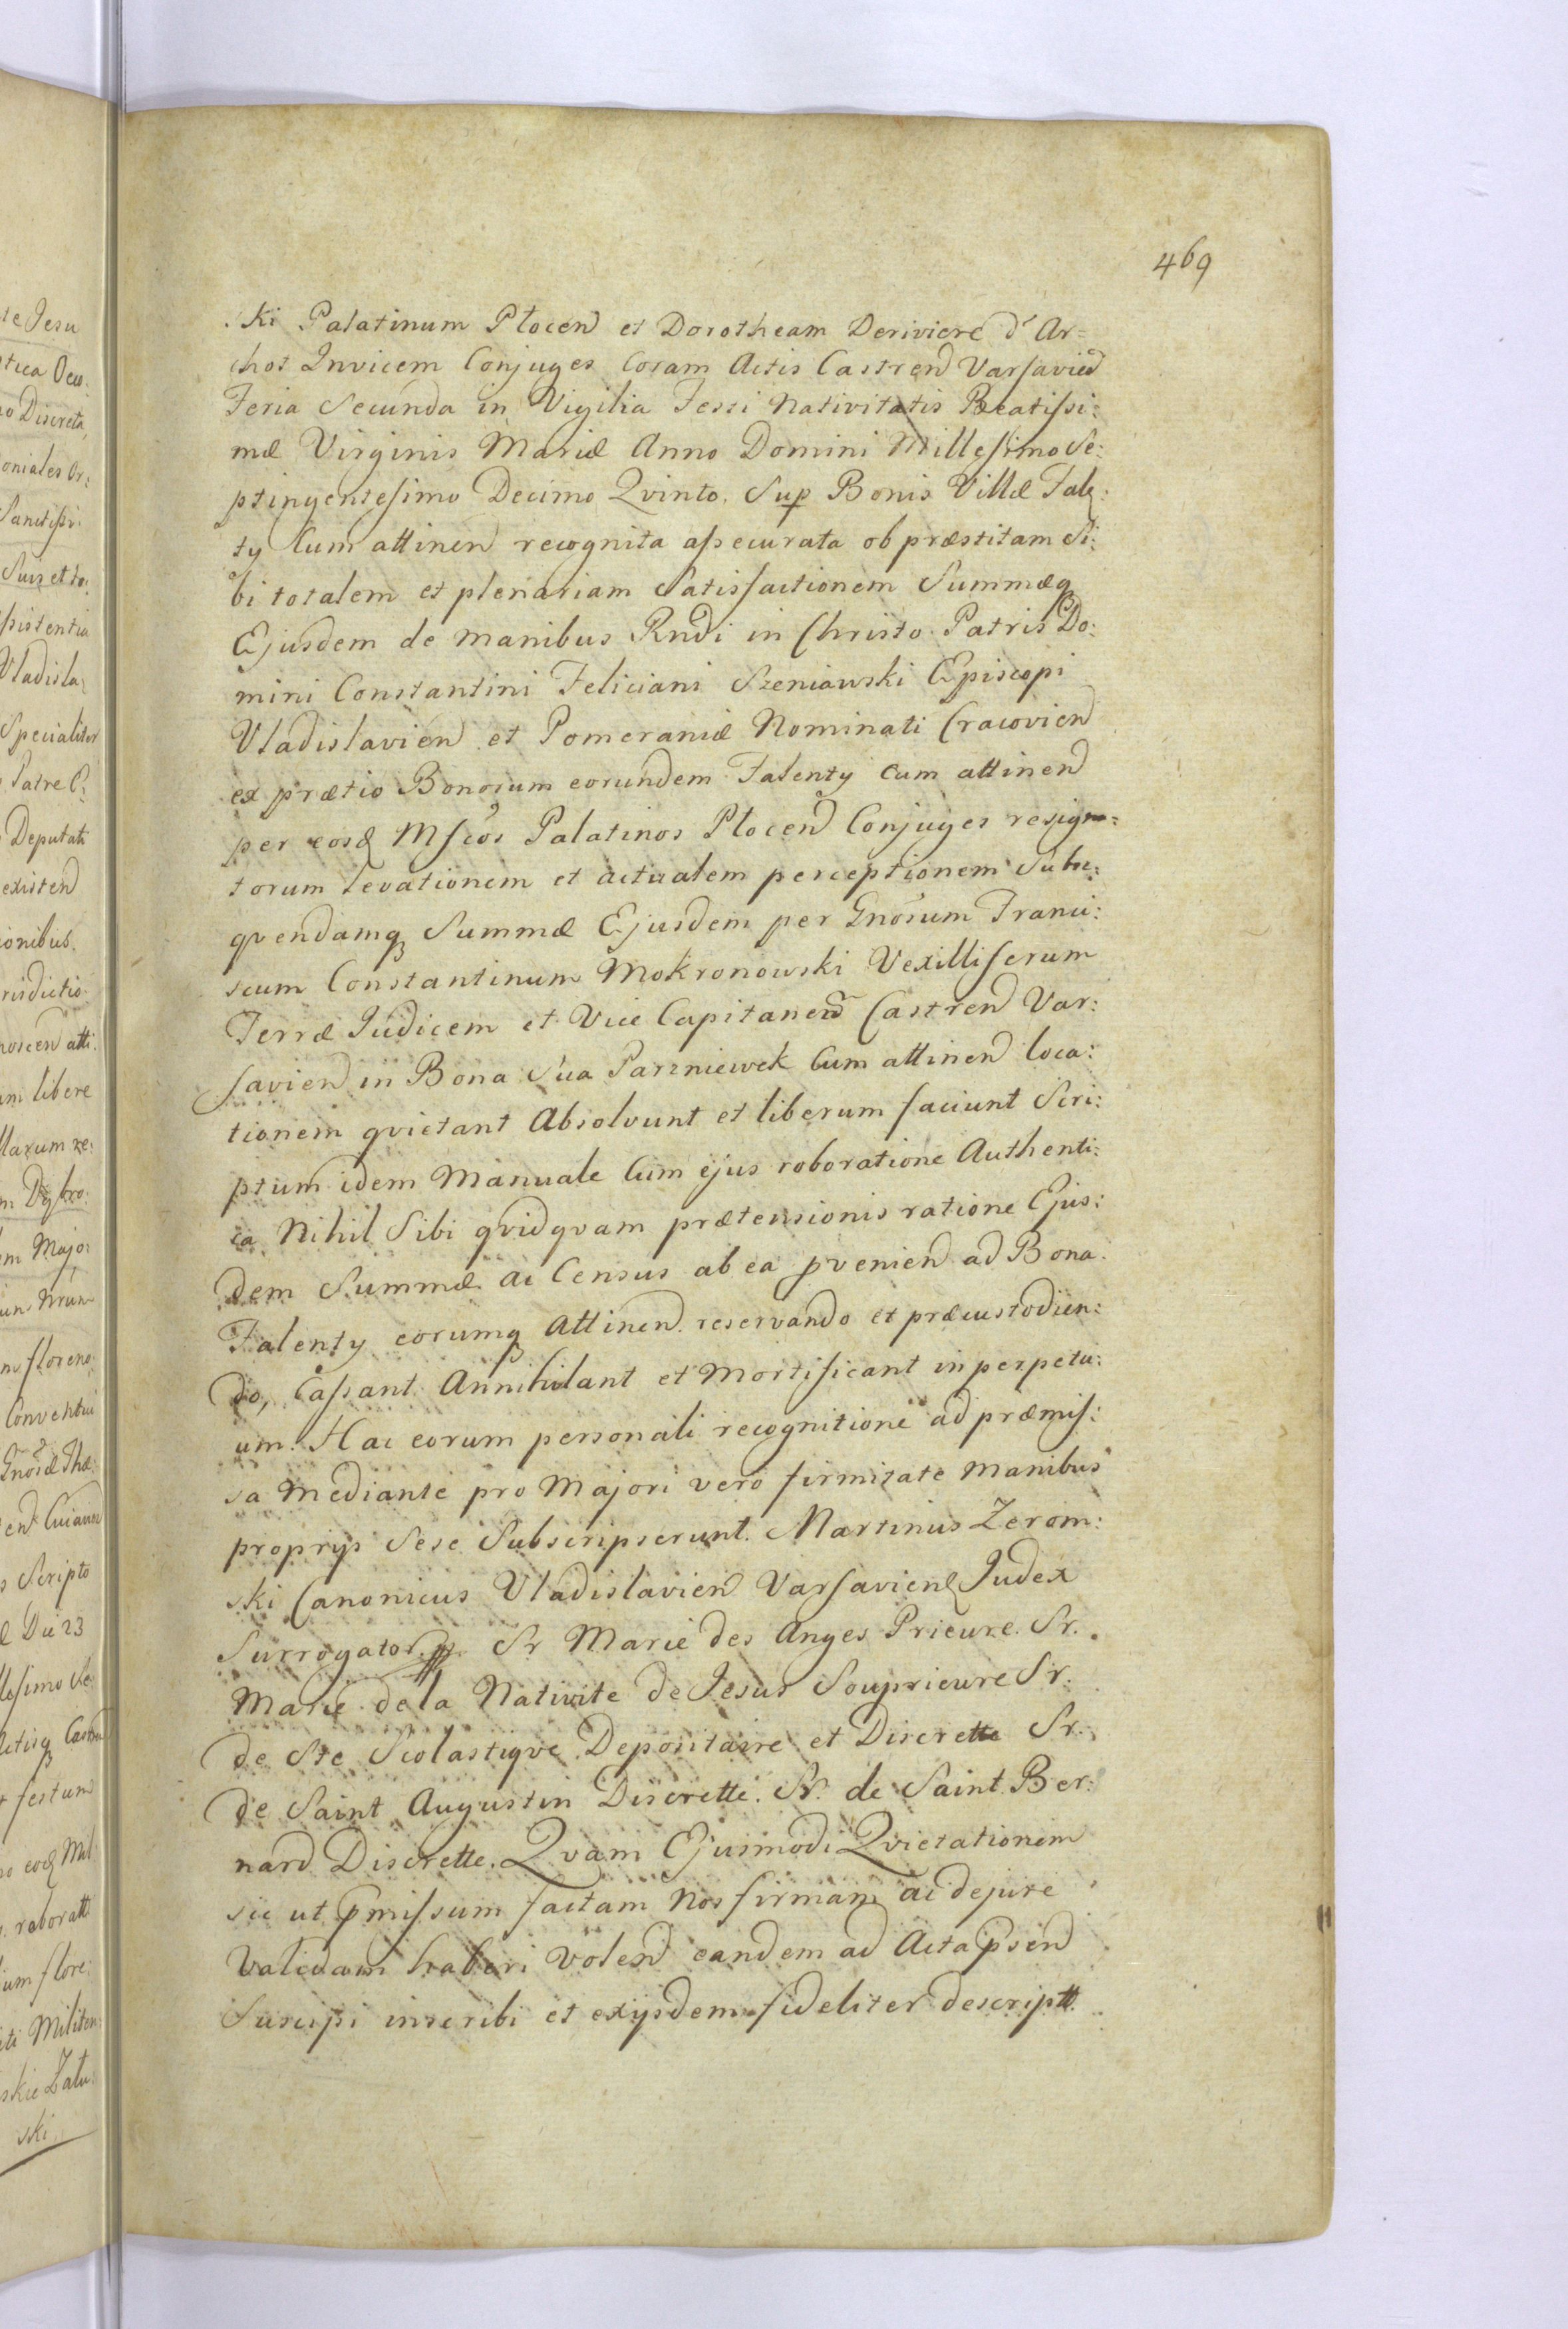 469
ski Palatinum Plocen et Dorotheam Deriviere d' Ar=
chot Invicem Conjuges Coram Actis Castren Varsavien
Feria Secunda in Vigilia Festi Nativitatis Beatissi:
mæ Virginis Mariæ Anno Domini Millesimo Se:
ptingentesimo Decimo Qvinto. Sup Bonis Villæ Fale:
ty Cum attinen recognita assecurata ob præstitam Si:
bi totalem et plenariam Satisfactionem Summæq
Ejusdem de manibus Rndi in Christo Patris Do:
mini Constantini Feliciani Szeniawski Episcopi
Vladislavien et Pomeraniæ Nominati Cracovien
ex prætio Bonorum eorundem Falenty cum attinen
per eosd Mfcos Palatinos Plocen Conjuges resigna:
torum levationem et actualem perceptionem Subse:
qvendamq Summæ Ejusdem per Gnosum Franci:
scum Constantinum Mokronowski Vexilliferum
Terræ Judicem et Vice Capitaneu Castren Var:
savien in Bona Sua Parzniewek Cum attinen loca:
tionem qvietant Absolvunt et liberum faciunt Scri:
ptum idem Manuale Cum ejus roboratione Authenti:
ca Nihil Sibi qvidqvam prætensionis ratione Ejus:
dem Summæ ac Census ab ea pvenien ad Bona
Falenty eorumq Attinen reservando et præcustodien:
do, Cassant Annihilant et Mortificant in perpetu:
um. Hac eorum personali recognitione ad præmis:
sa mediante pro Majori vero firmitate manibus
proprijs Sese Subscripserunt. Martinus Zerom:
ski Canonicus Vladislavien Varsavien Judex
Surrogator Sr Marie des Anges Prieure. Sr.
Marie de la Nativite de Jesus Souprieure Sr:
de Ste Scolastiqve Depositaire et Discrette Sr:
de Saint Augustin Discrette. Sr. de Saint Ber:
nard Discrette. Qvam Ejusmodi Qvietationem
sic ut pmissum factam Nos firmam ac dejure
Validam haberi volen eandem ad Acta psen
Suscipi inscribi et exijsdem fideliter descriptt.